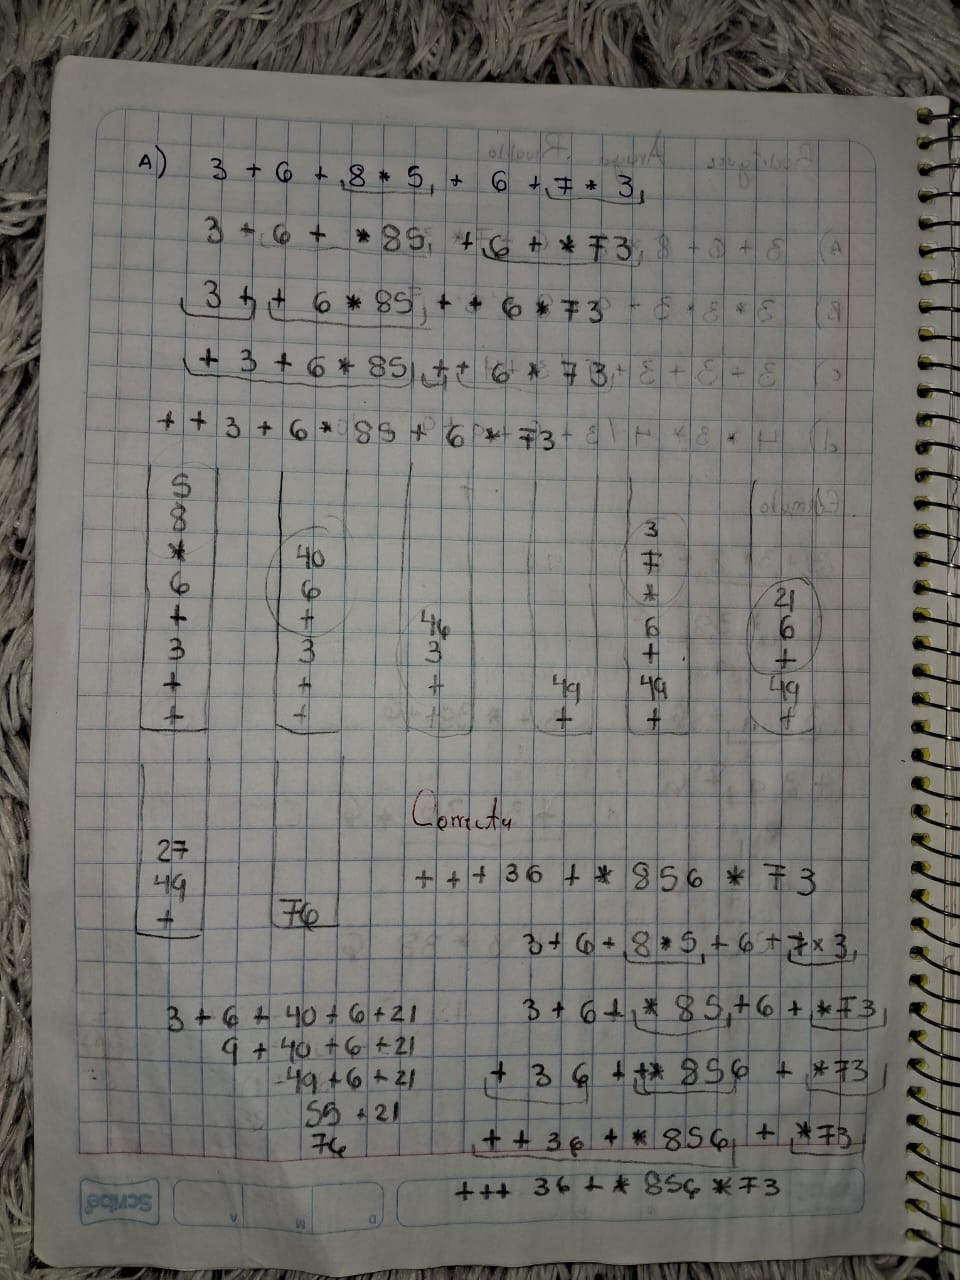 A) 3 + 6 + 8 * 5 + 6 + 7 * 3
3 + 6 + * 85 + 6 + * 73
3 + + 6 * 85 + + 6 * 73
+ 3 + 6 * 85 + + 6 * 73
+ + 3 + 6 * 85 + 6 * 73
5
8
*
6
+
3
+
+
40
6
+
3
+
+
46
3
+
+
49
+
3
7
*
6
+
49
+
21
6
+
49
+
27
49
+
76
Correcta
+ + + 36 + * 856 * 73
3 + 6 + 8 * 5 + 6 + 7 * 3
3 + 6 + * 85 + 6 + * 73
+ 36 + + * 856 + * 73
+ + 36 + * 856 + * 73
+++ 36 + * 856 * 73
3 + 6 + 40 + 6 + 21
9 + 40 + 6 + 21
49 + 6 + 21
55 + 21
76
Scribe
D M A